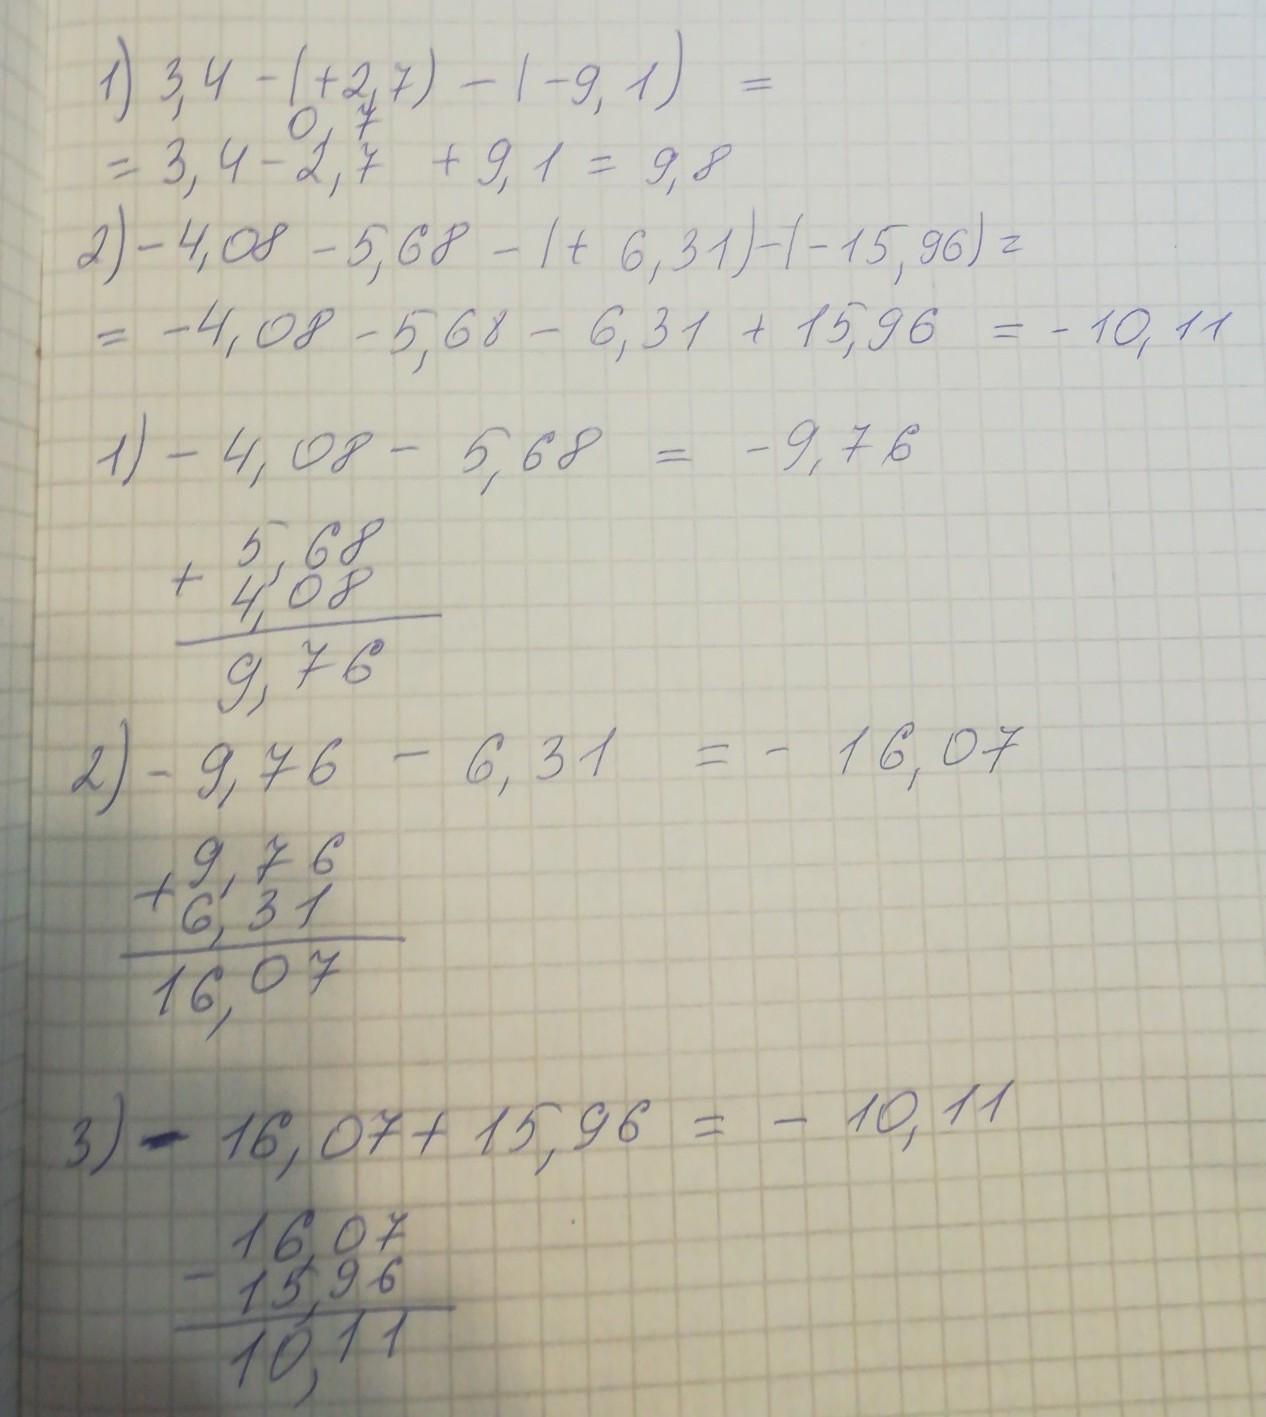 1) 3,4 - (+2,7) - (-9,1) =
0,7
= 3,4 - 2,7 + 9,1 = 9,8
2) - 4,08 - 5,68 - (+ 6,31) - (-15,96) =
= -4,08 - 5,68 - 6,31 + 15,96 = -10,11
1) - 4,08 - 5,68 = -9,76
5,68
+ 4,08
9,76
2) - 9,76 - 6,31 = - 16,07
9,76
+ 6,31
16,07
3) - 16,07 + 15,96 = - 10,11
16,07
- 15,96
10,11